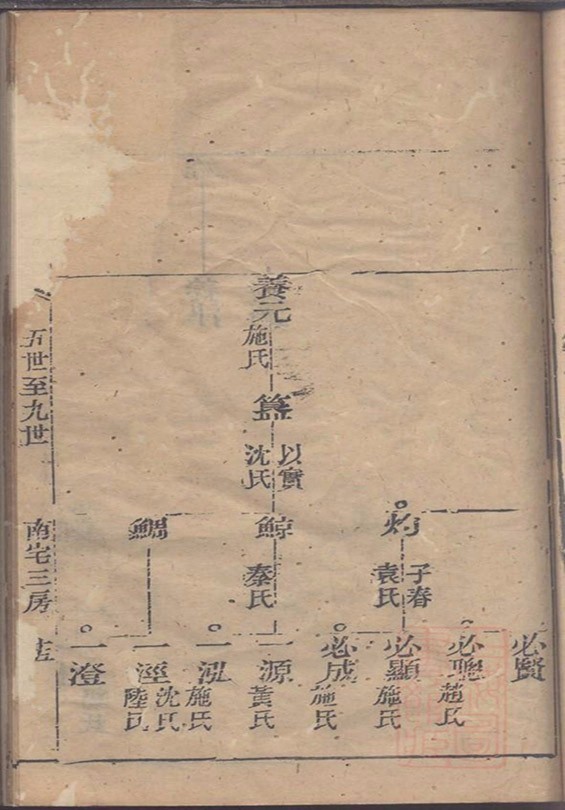 養元
施氏
簋
以實
沈氏
灼
子春
袁氏
鯨
秦氏
鯛
必賢
必聰
趙氏
必顯
施氏
必成
施氏
一源
黃氏
一泓
施氏
一涇
沈氏
陸氏
一澄
五世至九世
南宅三房